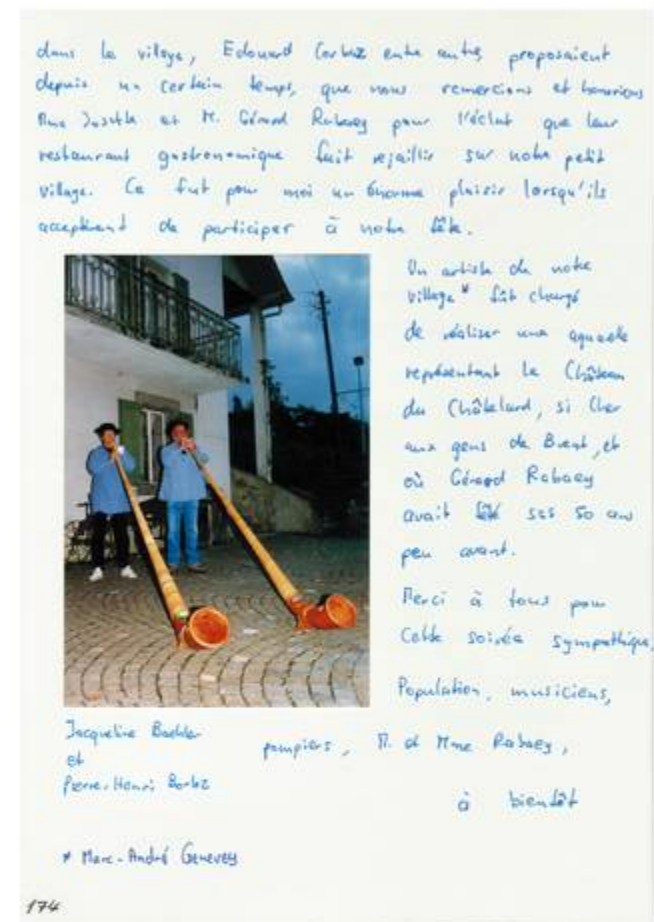 dans le village, Edouard Corbaz entre autres proposaient
depuis un certain temps, que nous remercions et honorions
Mme Josette et M. Gérard Rabaey pour l'éclat que leur
restaurant gastronomique fait rejaillir sur notre petit
village. Ce fut pour moi un énorme plaisir lorsqu'ils
acceptèrent de participer à notre fête.
Un artiste de notre
village * fût chargé
de réaliser une aquarelle
représentant le Château
du Châtelard, si cher
aux gens de Brent, et
où Gérard Rabaey
avait fêté ses 50 ans
peu avant.
Merci à tous pour
cette soirée sympathique,
Population, musiciens,
pompiers, M. et Mme Rabaey,
à bientôt
Jacqueline
et
Pierre-Henri
* Marc-André Genevey
174